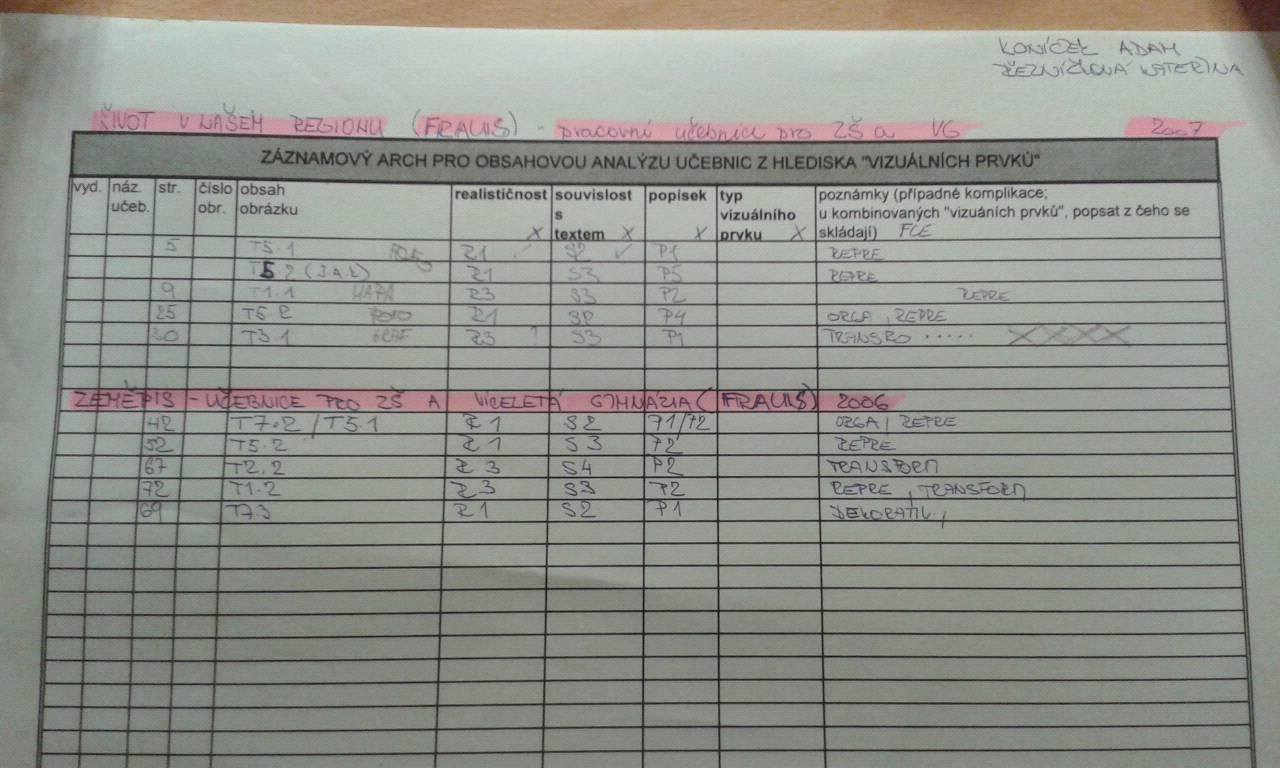 KONÍČEK ADAM
ŘEZNÍČKOVÁ KATEŘINA
ŽIVOT V NAŠEM REGIONU (FRAUS) - pracovní učebnice pro ZŠ a VG 2007
ZÁZNAMOVÝ ARCH PRO OBSAHOVOU ANALÝZU UČEBNIC Z HLEDISKA "VIZUÁLNÍCH PRVKŮ"
vyd. náz. učeb. str. číslo obr. obsah obrázku realističnost X souvislost s textem X popisek X typ vizuálního prvku X poznámky (případné komplikace; u kombinovaných "vizuáních prvků", popsat z čeho se skládají) FCE
5 T5.1 R1 ✓ S2 ✓ P1 REPRE
T5.2 (J.A.K) R1 S3 P5 REPRE
9 T1.1 MAPA R3 S3 P2 REPRE
25 T5.2 FOTO R1 S2 P4 ORGA, REPRE
30 T3.1 GRAF R3 ? S3 P1 TRANSFO ·····
ZEMĚPIS - UČEBNICE PRO ZŠ A VÍCELETÁ GYMNÁZIA (FRAUS) 2006
42 T7.2 / T5.1 R1 S2 P1/P2 ORGA, REPRE
52 T5.2 R1 S3 P2 REPRE
67 T2.2 R3 S4 P2 TRANSFORM
72 T1.2 R3 S3 P2 REPRE, TRANSFORM
69 T7.3 R1 S2 P1 DEKORATIV,